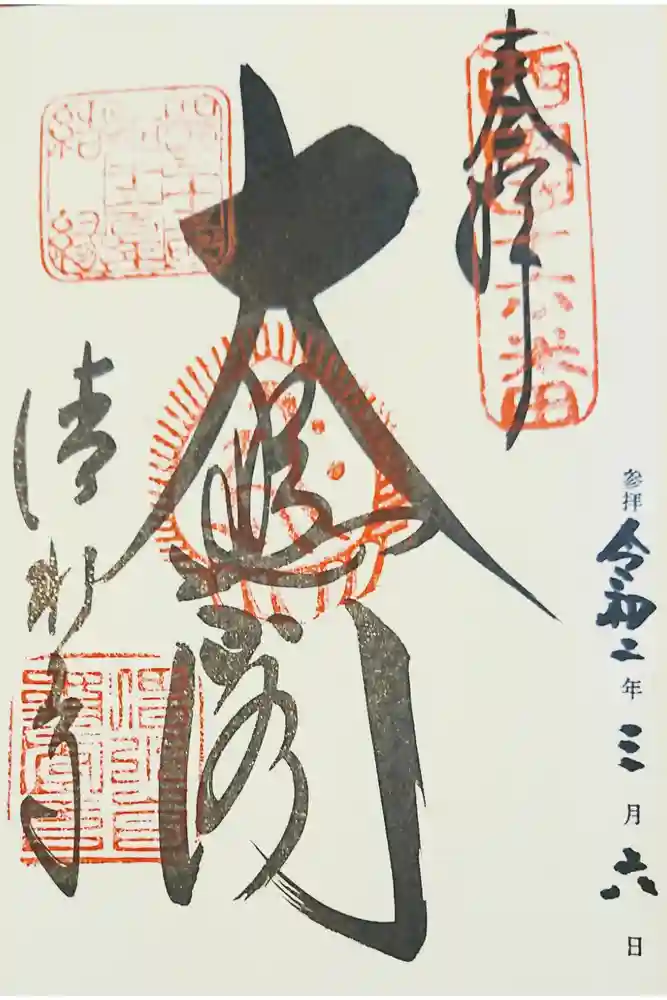 奉拝
西国十六番
大悲閣
清水寺
結縁
参拝 令和二年三月六日